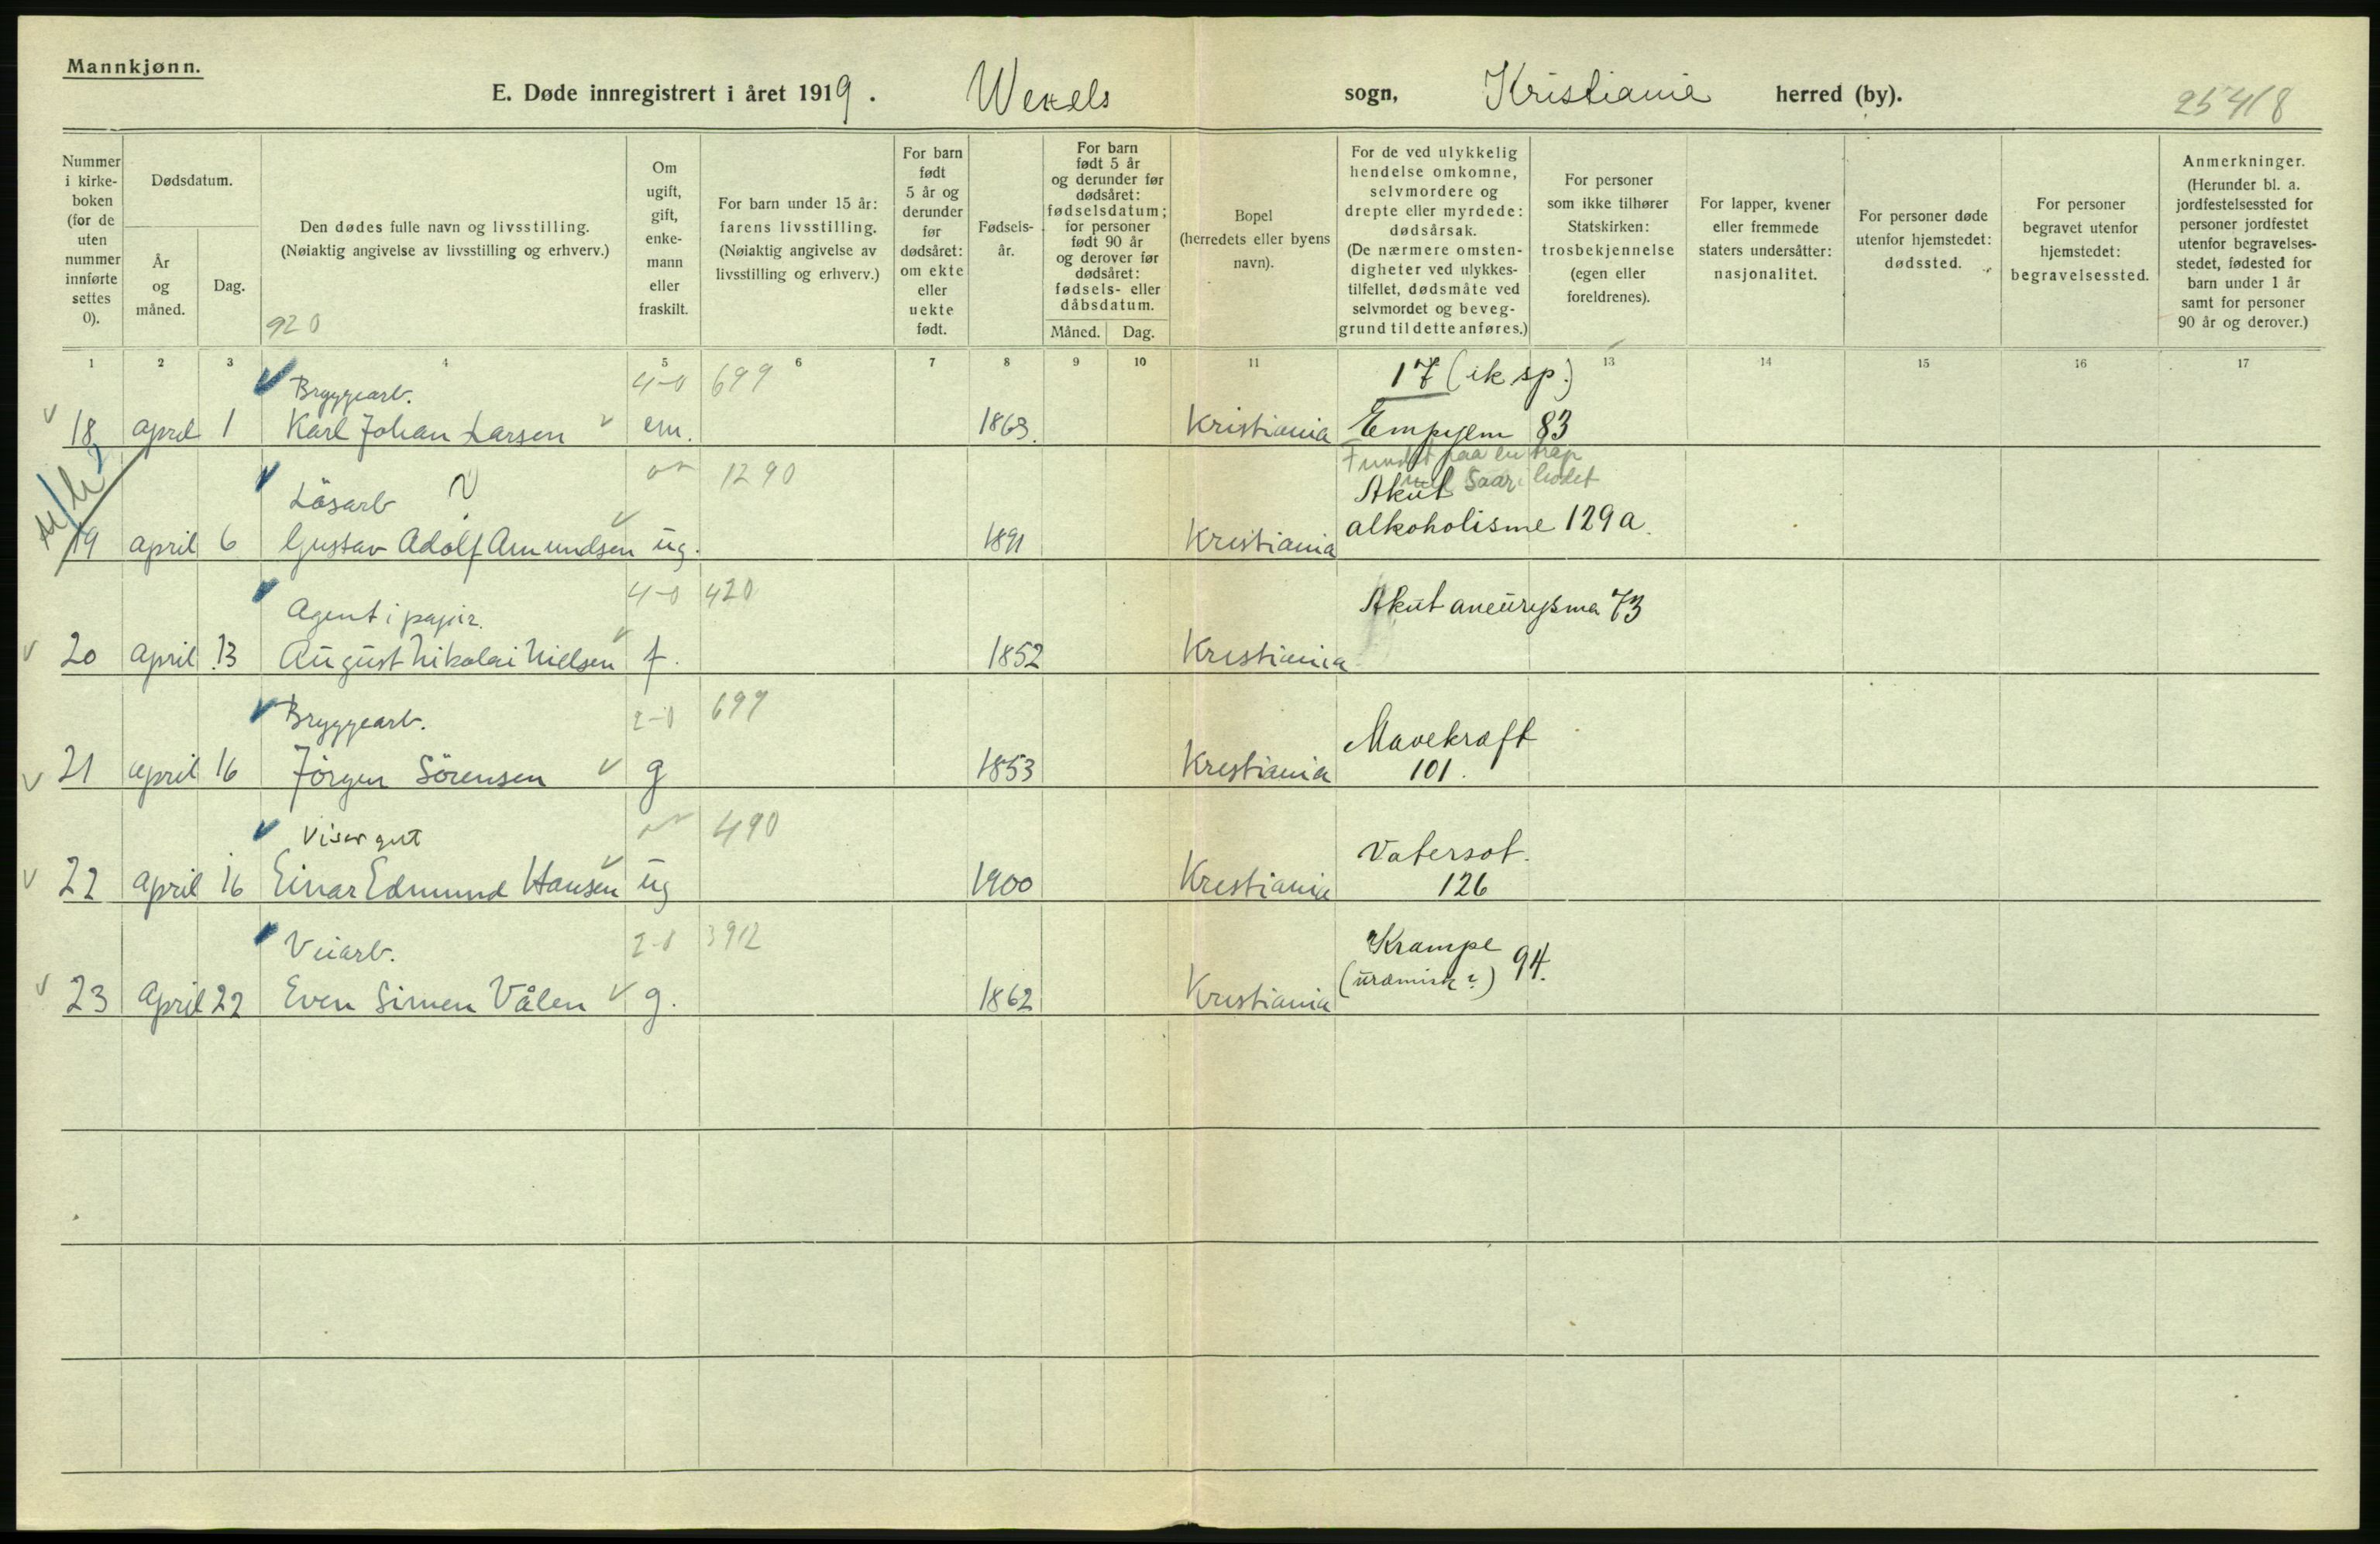 Mannkjønn.
E. Døde innregistrert i året 1919. Wexels sogn, Kristiania herred (by). 25418
Nummer i kirke-boken (for de uten nummer innførte settes 0).
Dødsdatum.
År og måned.
Dag.
Den dødes fulle navn og livsstilling.
(Nøiaktig angivelse av livsstilling og erhverv.)
920
Om ugift, gift, enke-mann eller fraskilt.
For barn under 15 år: farens livsstilling.
(Nøiaktig angivelse av livsstilling og erhverv.)
For barn født 5 år og derunder før dødsåret: om ekte eller uekte født.
Fødsels-år.
For barn født 5 år og derunder før dødsåret: fødselsdatum; for personer født 90 år og derover før dødsåret: fødsels- eller dåbsdatum.
Måned. Dag.
Bopel (herredets eller byens navn).
For de ved ulykkelig hendelse omkomne, selvmordere og drepte eller myrdede: dødsårsak.
(De nærmere omsten-digheter ved ulykkes-tilfellet, dødsmåte ved selvmordet og beveg-grund til dette anføres.)
For personer som ikke tilhører Statskirken: trosbekjennelse (egen eller foreldrenes).
For lapper, kvener eller fremmede staters undersåtter: nasjonalitet.
For personer døde utenfor hjemstedet: dødssted.
For personer begravet utenfor hjemstedet: begravelsessted.
Anmerkninger.
(Herunder bl. a. jordfestelsessted for personer jordfestet utenfor begravelses-stedet, fødested for barn under 1 år samt for personer 90 år og derover.)
1 2 3 4 5 6 7 8 9 10 11 13 14 15 16 17
Bryggearb. 4-0 699 17 (ik sp.)
18 april 1 Karl Johan Larsen em. 1863. Kristiania Empyem 83
Fundet paa en trap
Løsarb ? 1290 Akut
19 april 6 Gustav Adolf Amundsen ug. 1891 Kristiania alkoholisme 129a.
Agent i papir. 4-0 420 Akut aneurysma 73
20 april 13 August Nikolai Nielsen f. 1852 Kristiania
Bryggearb. 2-0 699 Mavekræft
21 april 16 Jörgen Sörensen g 1853 Kristiania 101.
Visergut 490 Vatersot.
22 april 16 Einar Edmund Hansen ug 1900 Kristiania 126
Veiarb. 2-0 3912 Krampe
(uræmisk?) 94.
23 April 22 Even Simen Vålen g. 1862 Kristiania